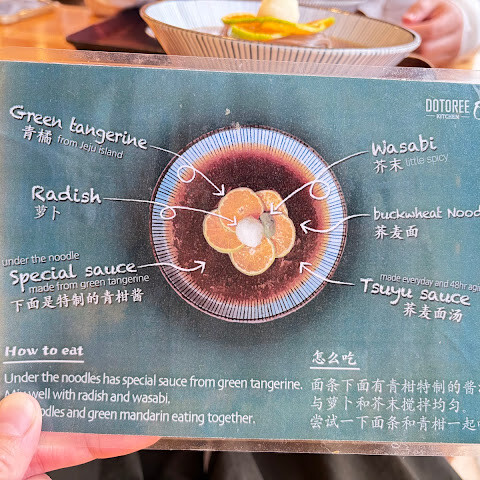 DOTOREE
KITCHEN
Green tangerine
青橘 from Jeju island
Radish
萝卜
under the noodle
Special sauce
made from green tangerine
下面是特制的青柑酱
Wasabi
芥末 little spicy
buckwheat Nood
荞麦面
made everyday and 48hr agin
Tsuyu sauce
荞麦面汤
How to eat
Under the noodles has special sauce from green tangerine.
well with radish and wasabi.
noodles and green mandarin eating together.
怎么吃
面条下面有青柑特制的酱
与萝卜和芥末搅拌均匀.
尝试一下面条和青柑一起